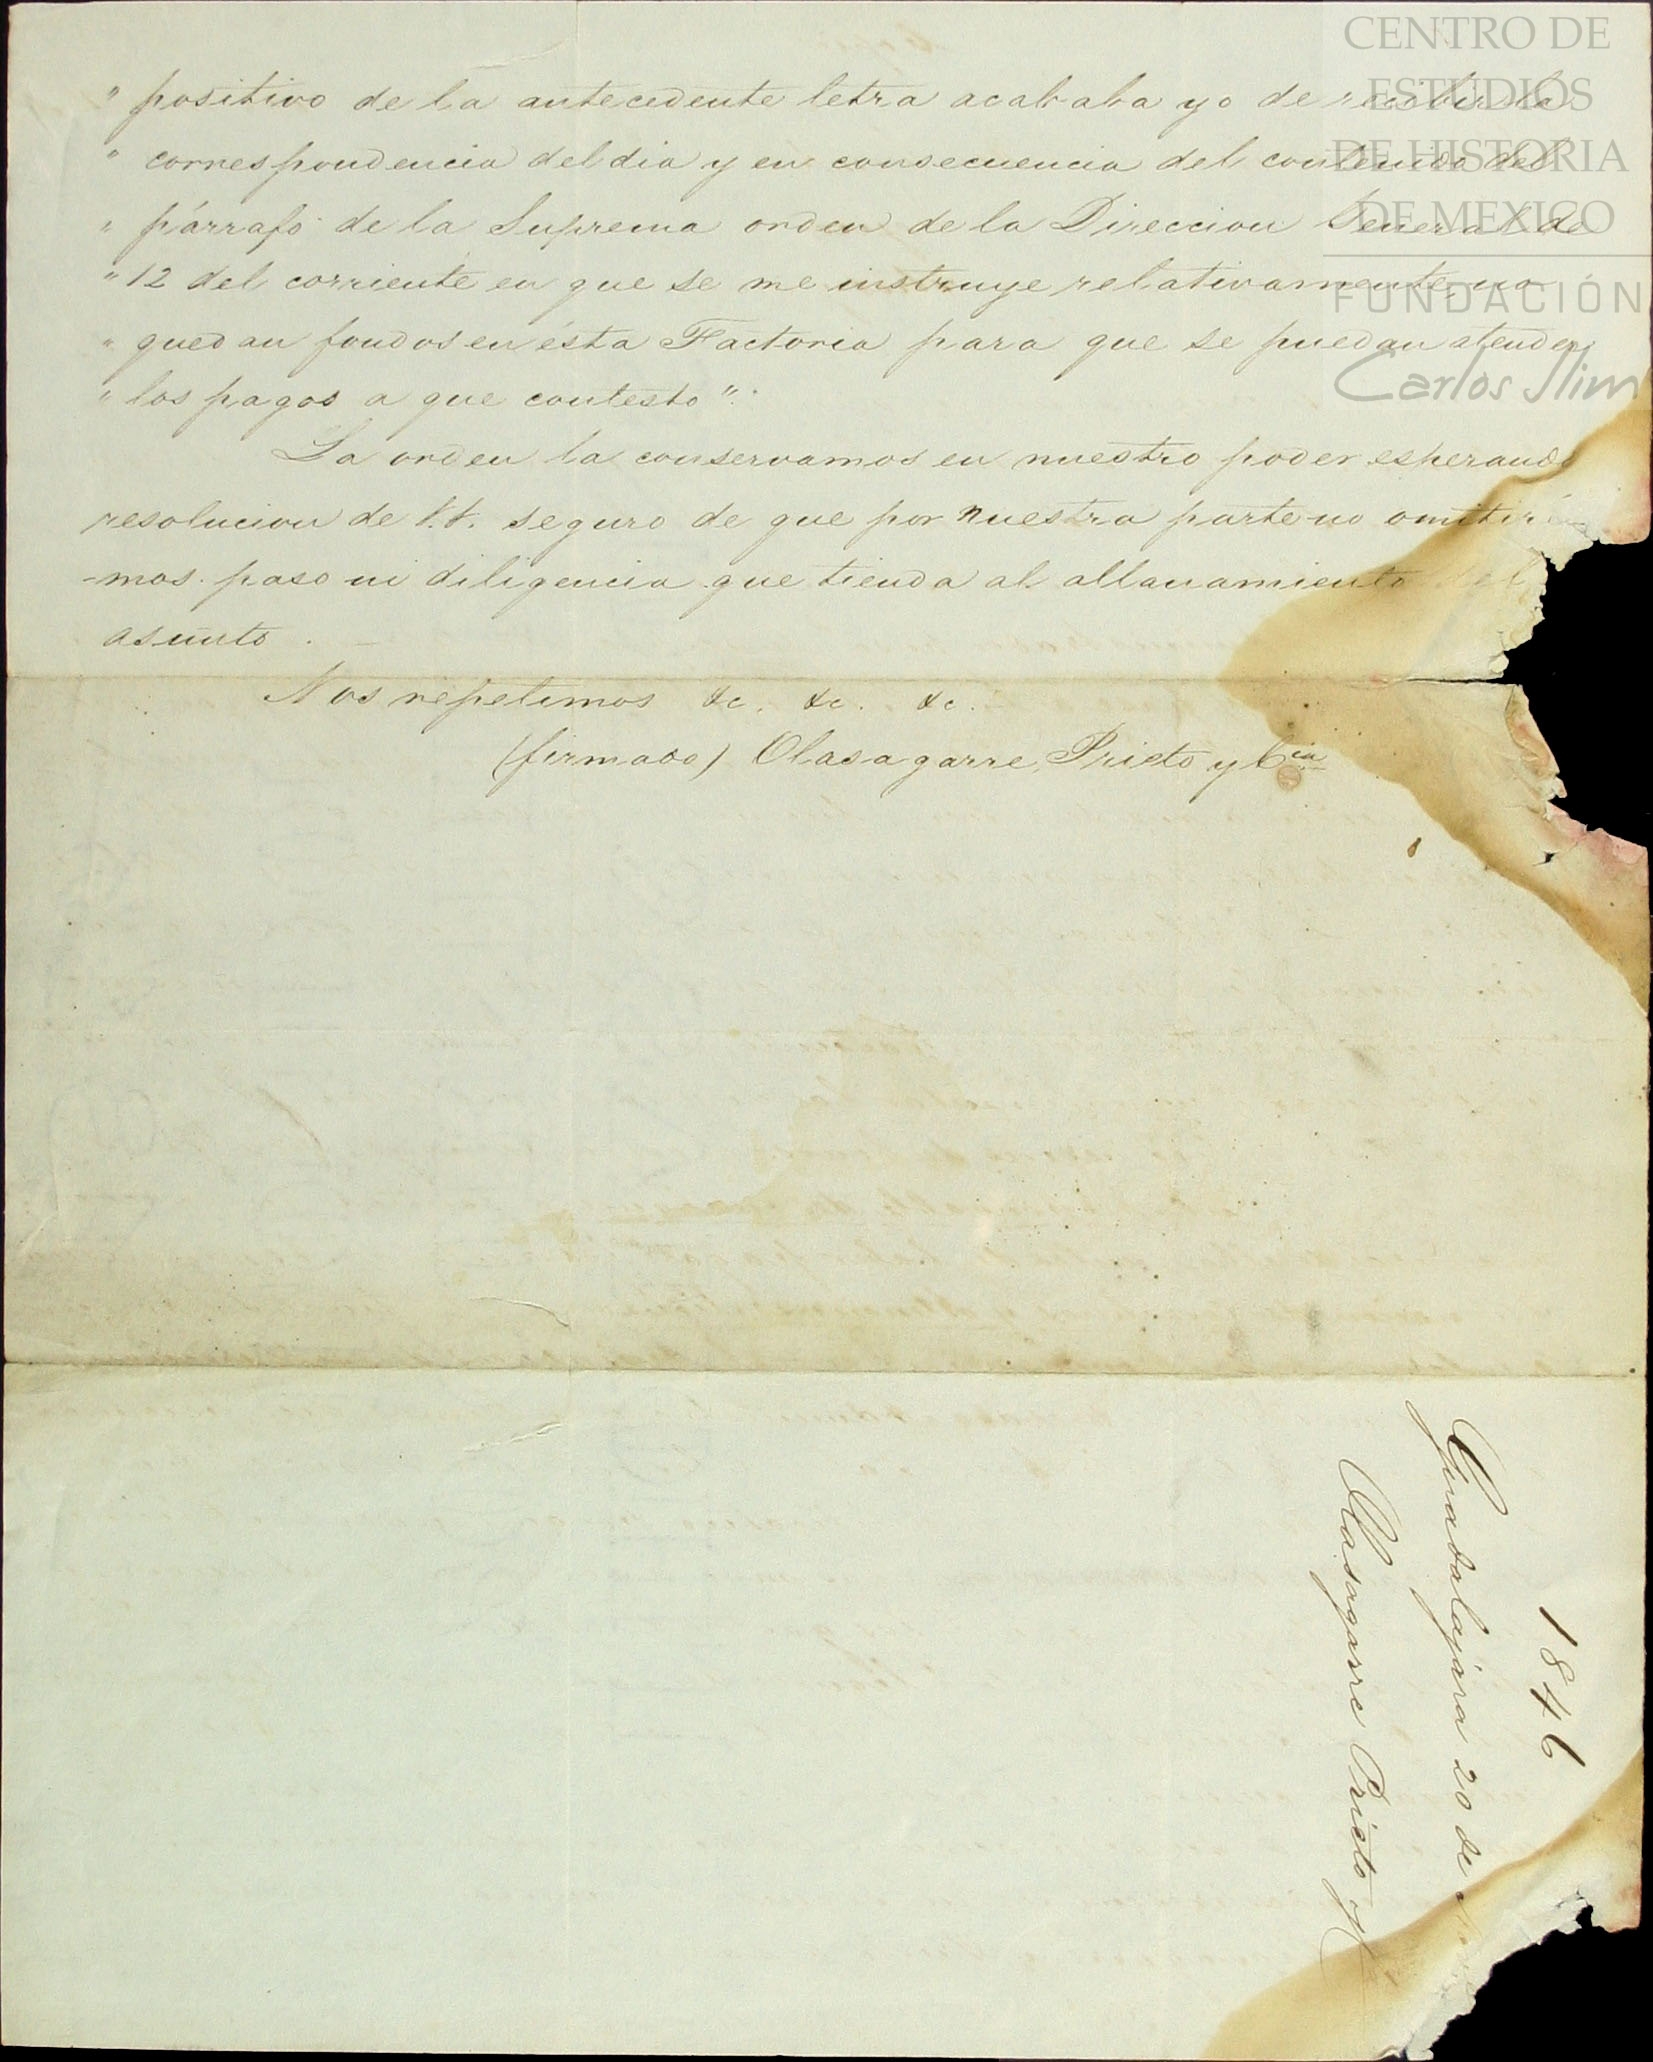 " positivo de la antecedente letra acababa yo de recibir la
" correspondencia del dia y en consecuencia del contenido del
" párrafo de la Suprema orden de la Direccion General de
" 12 del corriente en que se me instruye relativamente, no
" quedan fondos en ésta Factoria para que se puedan atender
" los pagos a que contesto".
La orden la conservamos en nuestro poder esperando
resolucion de V.V. seguro de que por nuestra parte no omitiré
-mos paso ni diligencia que tienda al allanamiento del
asunto.
Nos repetimos &c. &c. &c.
(firmado) Olasagarre, Prieto y Cia
1846
Guadalajara 20 de
Olasagarre Prieto y
CENTRO DE
ESTUDIOS
DE HISTORIA
DE MEXICO
FUNDACIÓN
Carlos Slim